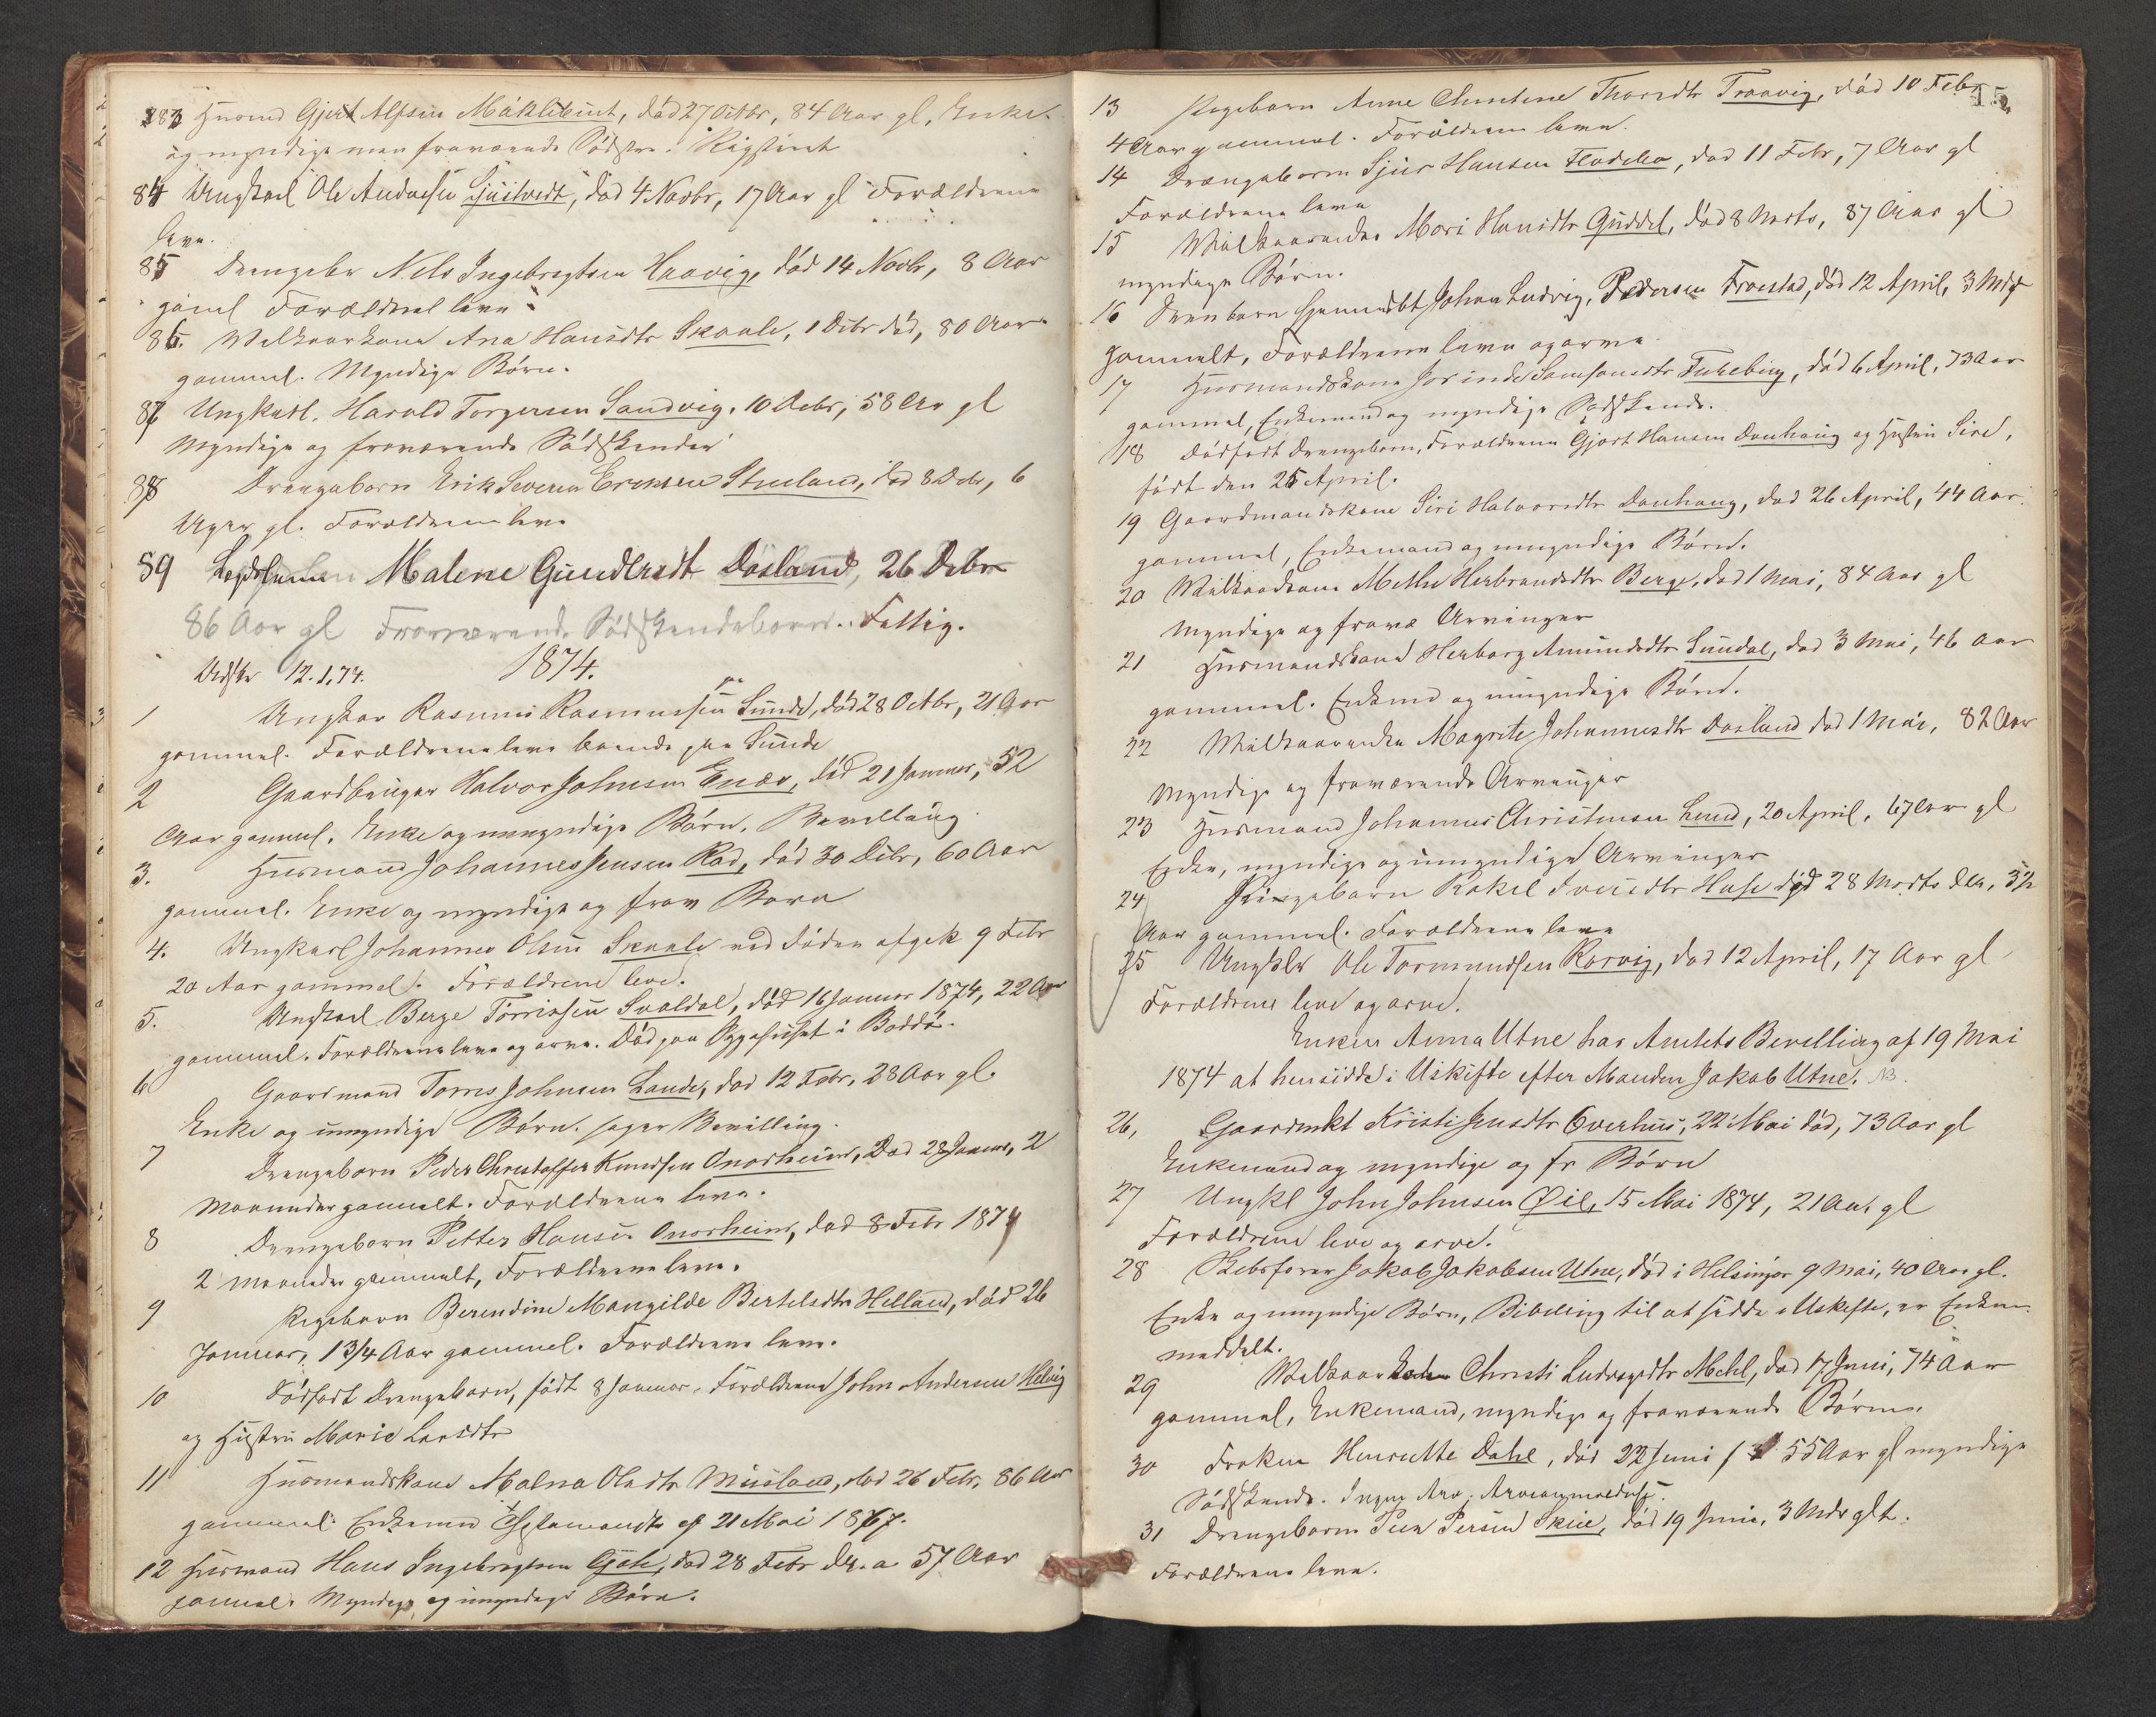 83 Husmd Gjert Alfsen Mäkletvint, död 27 Octbr, 84 Aar gl, Enke
og myndige men fraværende Södstre.
84 Ungkarl Ole Andersen Gjuitvedt, död 4 Novbr, 17 Aar gl Forældrene
leve.
85 Drengebr Nels Ingebregtsen Haavig, död 14 Novbr, 8 Aar
gaml Forældrene leve
86. Velkaarkone Ana Hansdtr Skaale, 1 Debr död, 80 Aar
gammel. Myndige Börn.
87 Ungkarl. Harald Torgersen Sandvig. 10 Debr, 58 Aar gl
Myndige og fraværende Södskender
88 Drengebarn Erik Severin Eriksen Struland, död 8 Debr, 6
Uger gl. Forældrene leve
89 Malene Gundersdt Døsland, 26 Debr
86 Aar gl Fraværende Södskendebarn. Fattig.
Udskr 12.1.74. 1874.
1 Ungkar Rasmus Rasmussen Sunde, död 28 Octbr, 21 Aar
gammel. Forældrene leve boende paa Sunde
2 Gaardbruger Halvor Johnsen Enæs, död 21 Januar, 52
Aar gammel. Enke og umyndige Börn. Bevilling
3. Husmand Johannes Jensen Rød, död 30 Debr, 60 Aar
gammel. Enke og myndige og frav Børn
4. Ungkarl Johannes Olsen Skaale ved döden afgik 9 Febr
20 Aar gammel. Forældrene leve.
5. Ungkarl Berge Torrissen Svaldal, död 16 Januar 1874, 22 Aar
gammel. Forældrene leve og arve. Död paa Sygehuset i Boddö.
6 Gaardmand Torris Johnsen Lande, död 12 Febr, 28 Aar gl.
Enke og umyndige Börn. søger Bevilling.
7 Drengebarn Peder Christoffer Knudsen Onarheim, Död 28 Januar, 2
Maaneder gammelt. Forældrene leve.
8 Drengebarn Petter Hansen Onarheim, död 8 Febr 1874
2 Maaneder gammelt, Forældrene leve.
9 Pigebarn Berendine Mangilde Bertelsdtr Helland, död 26
Januar, 1 3/4 Aar gammel. Forældrene leve.
10 Dödfödt Drengebarn, födt 8 Januar. Forældrene John Andersen Utvig
og Hustru Marie Larsdtr
11 Husmandskone Malna Olsdtr Musland, död 26 Febr, 86 Aar
gammel. Enkemd Testamendte af 21 Mai 1867.
12 Husmand Hans Ingebregtsen Gjøte, död 28 Febr d.a. 57 Aar
gammel. Myndige og umyndige Börn.
13 Pigebarn Anne Christine Thoresdtr Traavig, död 10 Febr
4 Aar gammel. Forældrene leve.
14 Drængebarn Sjur Hansen Flodebø, död 11 Febr, 7 Aar gl
Forældrene leve
15 Vilkaarenke Mari Hansdtr Guddal, död 8 Marts, 87 Aar gl
myndige Börn.
16 Drenbarn hjemmedbt Johan Ludvig Pedersen Frøestad, död 12 April, 3 Mdr
gammelt, Forældrene leve og arve
17 Husmandskone Jorinde Samsonsdtr Turebing, död 6 April, 73 Aar
gammel, Enkemand og myndige Södskende.
18 Dödfödt Drengebarn, Forældrene Gjert Hansen Dønhaug og Hustru Siri,
födt den 25 April.
19 Gaardmandskone Siri Halvorsdtr Dønhaug, död 26 April, 44 Aar
gammel, Enkemand og umyndige Börn.
20 Vilkaarkone Methe Herbrandsdtr Berge, død 1 Mai, 84 Aar gl
Myndige og fravæ Arvinger
21 Husmandskone Herborg Amundsdtr Sundal, död 3 Mai, 46 Aar
gammel. Enkemd og umyndige Börn.
22 Vilkaarenke Magrete Johannesdtr Døsland död 1 Mai, 82 Aar
Myndige og fraværende Arvinger
23 Husmand Johannes Christensen Lund, 20 April, 67 Aar gl
Enke, myndige og umyndige Arvinger
24 Pigebarn Rakel Iversdtr Huse död 28 Marts d.a., 3 1/2
Aar gammel. Forældrene leve
25 Ungklr Ole Tormundsen Rørvig, död 12 April, 17 Aar gl
Forældrene leve og arve.
Enken Anna Utne har Amtets Bevilling af 19 Mai
1874 at hensidde i Uskifte efter Manden Jakob Utne. NB.
26, Gaardmkt Kristi Jensdtr Overhus, 22 Mai död, 73 Aar gl
Enkemand og myndige og fr Börn
27 Ungkl John Johnsen Øie, 15 Mai 1874, 21 Aar gl
Forældrene leve og arve.
28 Skibsfører Jakob Jakobsen Utne, död i Helsingør 9 Mai, 40 Aar gl.
Enke og umyndige Börn, Bevilling til at sidde i Uskifte, er Enken
meddelt.
29 Velkaarkone Christi Ludvigsdtr Mehl, död 17 Juni, 74 Aar
gammel, Enkemand, myndige og fraværende Börn.
30 Frøken Henriette Dahl, död 22 Juni 55 Aar gl myndige
Södskende. Ingen Arv. Arveanmeldelse.
31 Drengebarn Peer Persen Skeie, död 19 Juni, 3 Mdr glt.
Forældrene leve.